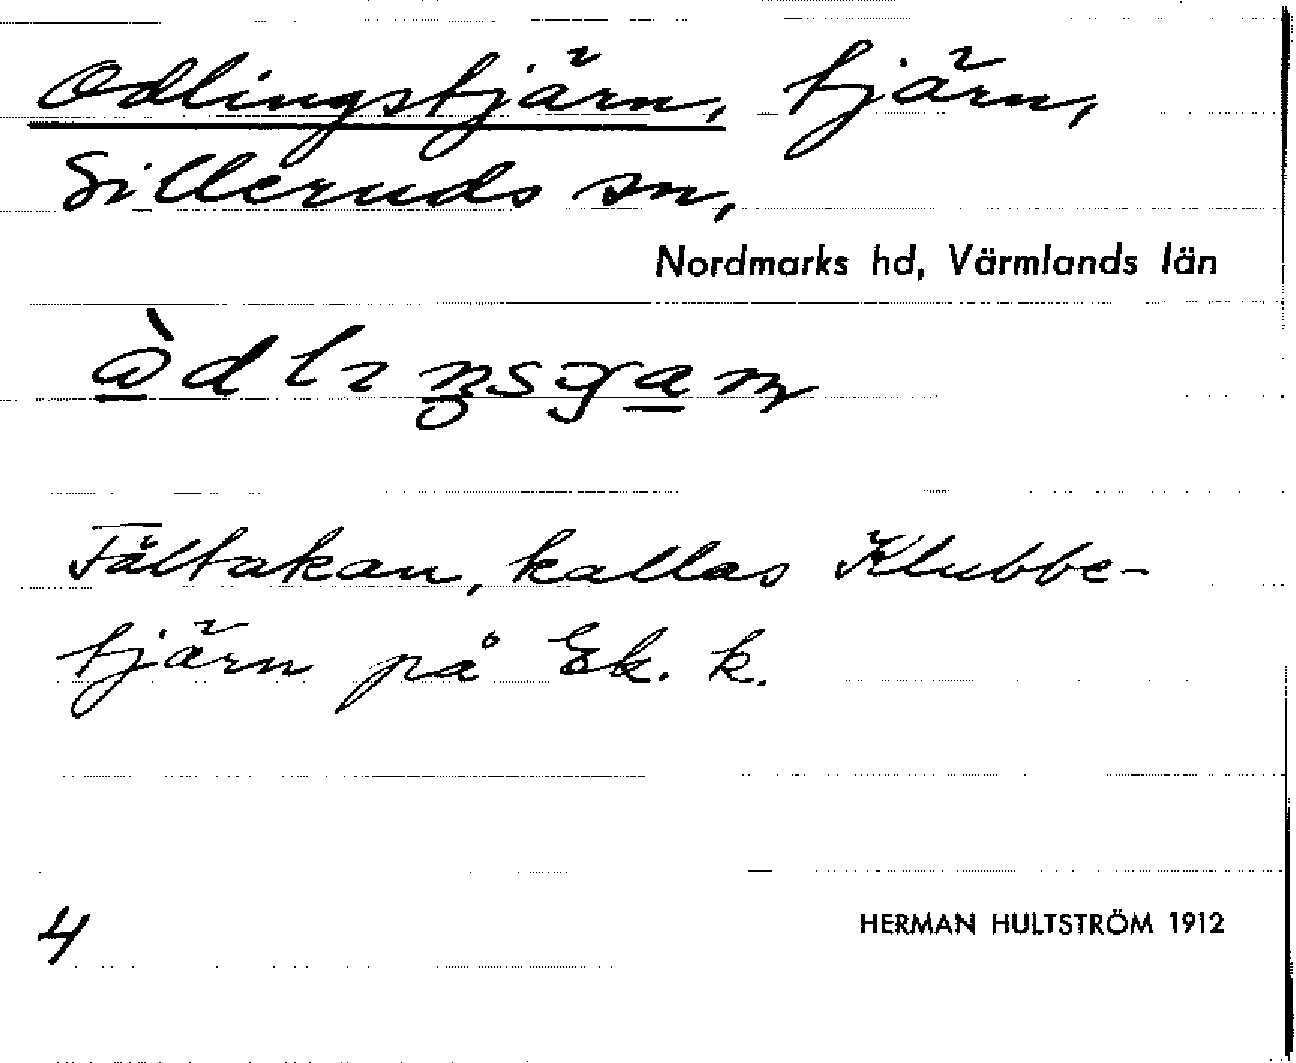 Odlingstjärn, tjärn,
Silleruds sn,
Nordmarks hd, Värmlands län
Fältakan, kallas Klubbe-
tjärn på Ek. k.
4
HERMAN HULTSTRÖM 1912